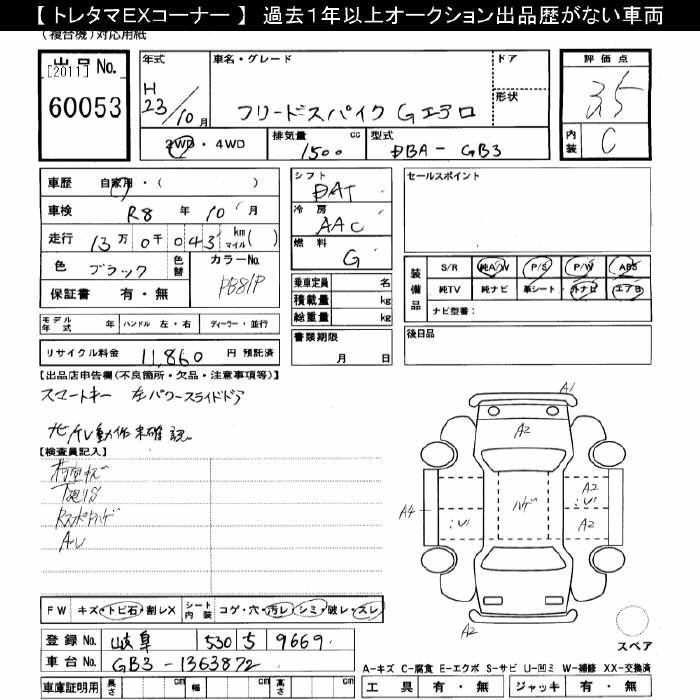 【 トレタマEXコーナー 】 過去1年以上オークション出品歴がない車両
(複合機)対応用紙
出品No.
[2011]
60053
年式
H
23/10月
車名・グレード
フリードスパイク Gエアロ
ドア
形状
2WD・4WD
排気量 1500 cc
型式 DBA-GB3
評価点
3.5
内装 C
車歴 自家用・( )
車検 R8 年 10 月
走行 13万0千043 km マイル( )
色 ブラック 色替
カラーNo. PB81P
保証書 有・無
シフト
DAT
冷房
AAC
燃料
G
乗車定員 名
積載量 kg
総重量 kg
書類期限
月 日
セールスポイント
装備品
S/R 純A/W P/S P/W ABS
純TV 純ナビ 革シート 外ナビ エアB
ナビ型番:
後日品
モデル年式 年 ハンドル 左・右 ディーラー・並行
リサイクル料金 11,860 円 預託済
【出品店申告欄(不良箇所・欠品・注意事項等)】
スマートキー 左パワースライドドア
地デジTV動作未確認
【検査員記入】
内面キズ
下廻りS
A-U
A1
A2
A4
:U1
ハゲ
A2
:U1
A2
A2
スペア
FW キズ・トビ石・割レX
シート内装 コゲ・穴・汚レ・シミ・破レ・スレ
登録No. 岐阜 530 5 9669
車台No. GB3-1363872
車庫証明用 長さ cm 幅 cm 高さ cm
A-キズ C-腐食 E-エクボ S-サビ U-凹ミ W-補修 XX-交換済
工具 有・無 ジャッキ 有・無